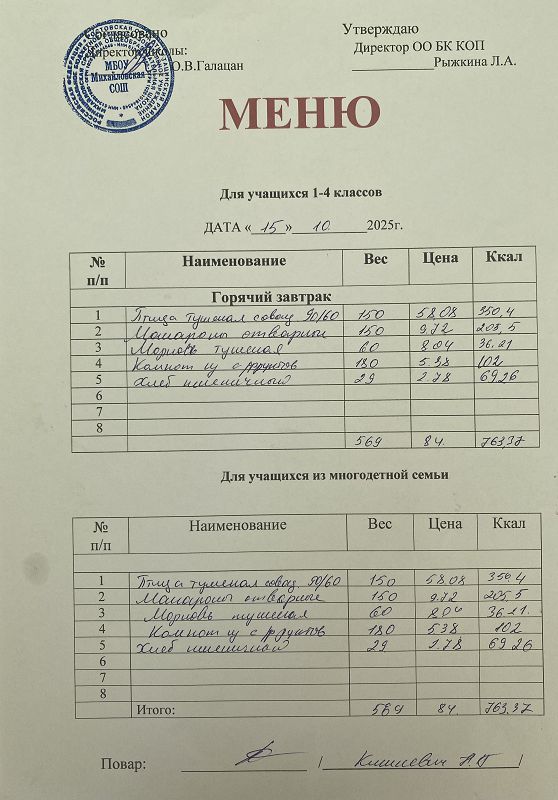 Согласовано
Утверждаю
Директор школы:
Директор ОО БК КОП
О.В.Галацан
Рыжкина Л.А.
МБОУ
Михайловская
СОШ
МЕНЮ
Для учащихся 1-4 классов
ДАТА « 15 » 10. 2025г.
№ п/п Наименование Вес Цена Ккал
Горячий завтрак
1 Птица тушеная совощ 90/60 150 58.08 350,4
2 Макароны отварные 150 9.72 205,5
3 Морковь тушеная 60 8.04 36.21
4 Компот из с/фруктов 180 5.38 102
5 Хлеб пшеничный 29 2.78 69.26
6
7
8
569 84. 763,37
Для учащихся из многодетной семьи
№ п/п Наименование Вес Цена Ккал
1 Птица тушеная совощ 90/60 150 58.08 350,4
2 Макароны отварные 150 9.72 205,5
3 Морковь тушеная 60 8.04 36.21.
4 Компот из с/фруктов 180 5.38 102
5 Хлеб пшеничный 29 2.78 69.26
6
7
8
Итого: 569 84. 763,37
Повар: / /